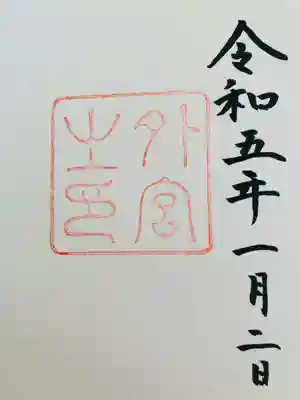 令和五年一月二日
外宮
之印